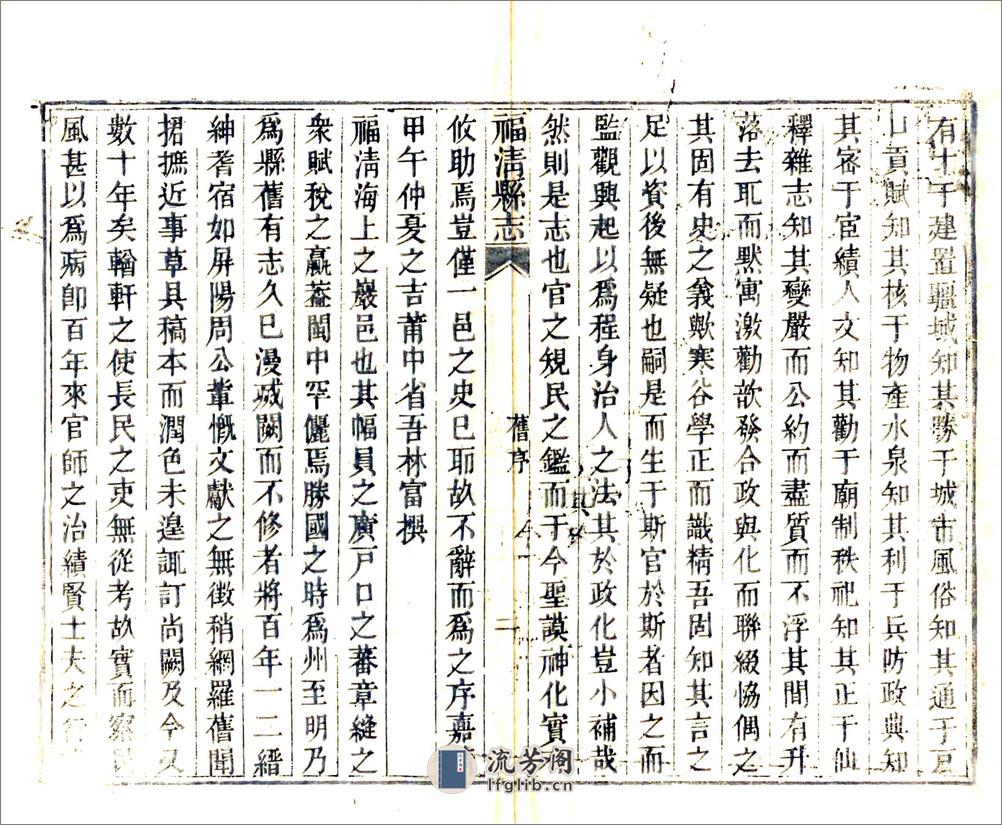 有土于建置疆域知其勝于城市風俗知其通于戶
口貢賦知其核于物產水泉知其利于兵防政典知
其密于宦績人文知其勸于廟制秩祀知其正于仙
釋雜志知其變嚴而公約而盡質而不浮其間有升
落去取而默寓激勸歆發合政與化而聯綴協偶之
其固有史之義歟寒谷學正而識精吾固知其言之
足以資後無疑也嗣是而生于斯官於斯者因之而
監觀興起以為程身治人之法其於政化豈小補哉
然則是志也官之規民之鑑而于今聖謨神化實其
福清縣志
舊序
二
攸助焉豈僅一邑之史已耶故不辭而為之序嘉
甲午仲夏之吉莆中省吾林富撰
福清海上之巖邑也其幅員之廣戶口之蕃章縫之
衆賦稅之贏葢閩中罕儷焉勝國之時為州至明乃
為縣舊有志久已漫滅闕而不修者將百年一二縉
紳耆宿如屏陽周公輩慨文獻之無徵稍網羅舊聞
捃摭近事草具稿本而潤色未遑諏訂尚闕及今又
數十年矣輶軒之使長民之吏無從考故實而察
風甚以為病卽百年來官師之治績賢士大夫之行
流芳阁
lfglib.cn